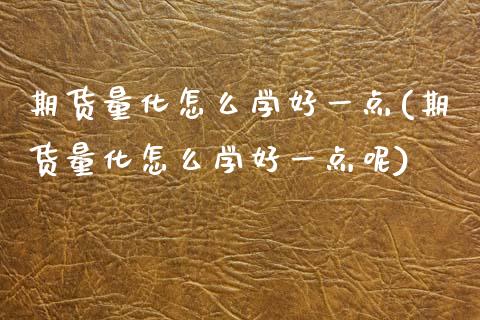 期货量化怎么学好一点(期
货量化怎么学好一点呢)